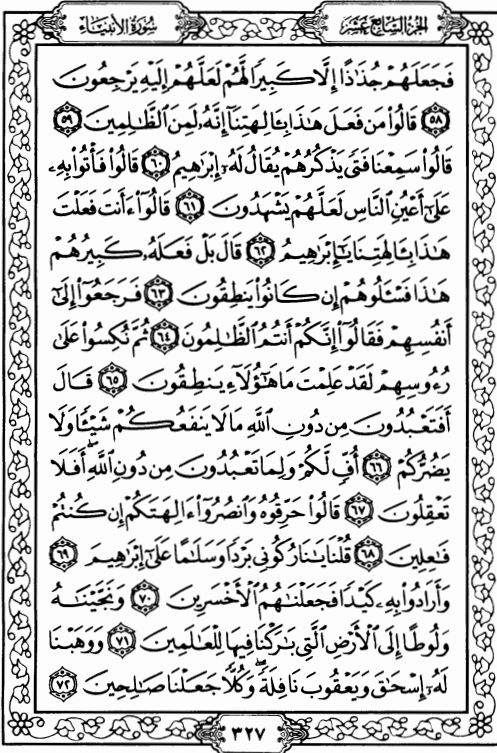 سُورَةُ الأَنْبِيَاءِ الجُزْءُ السَّابِعَ عَشَرَ
فَجَعَلَهُمْ جُذَٰذًا إِلَّا كَبِيرًا لَّهُمْ لَعَلَّهُمْ إِلَيْهِ يَرْجِعُونَ
﴿٥٨﴾ قَالُوا۟ مَن فَعَلَ هَٰذَا بِـَٔالِهَتِنَآ إِنَّهُۥ لَمِنَ ٱلظَّٰلِمِينَ ﴿٥٩﴾
قَالُوا۟ سَمِعْنَا فَتًى يَذْكُرُهُمْ يُقَالُ لَهُۥٓ إِبْرَٰهِيمُ ﴿٦٠﴾ قَالُوا۟ فَأْتُوا۟ بِهِۦ
عَلَىٰٓ أَعْيُنِ ٱلنَّاسِ لَعَلَّهُمْ يَشْهَدُونَ ﴿٦١﴾ قَالُوٓا۟ ءَأَنتَ فَعَلْتَ
هَٰذَا بِـَٔالِهَتِنَا يَٰٓإِبْرَٰهِيمُ ﴿٦٢﴾ قَالَ بَلْ فَعَلَهُۥ كَبِيرُهُمْ
هَٰذَا فَسْـَٔلُوهُمْ إِن كَانُوا۟ يَنطِقُونَ ﴿٦٣﴾ فَرَجَعُوٓا۟ إِلَىٰٓ
أَنفُسِهِمْ فَقَالُوٓا۟ إِنَّكُمْ أَنتُمُ ٱلظَّٰلِمُونَ ﴿٦٤﴾ ثُمَّ نُكِسُوا۟ عَلَىٰ
رُءُوسِهِمْ لَقَدْ عَلِمْتَ مَا هَٰٓؤُلَآءِ يَنطِقُونَ ﴿٦٥﴾ قَالَ
أَفَتَعْبُدُونَ مِن دُونِ ٱللَّهِ مَا لَا يَنفَعُكُمْ شَيْـًٔا وَلَا
يَضُرُّكُمْ ﴿٦٦﴾ أُفٍّ لَّكُمْ وَلِمَا تَعْبُدُونَ مِن دُونِ ٱللَّهِ ۖ أَفَلَا
تَعْقِلُونَ ﴿٦٧﴾ قَالُوا۟ حَرِّقُوهُ وَٱنصُرُوٓا۟ ءَالِهَتَكُمْ إِن كُنتُمْ
فَٰعِلِينَ ﴿٦٨﴾ قُلْنَا يَٰنَارُ كُونِى بَرْدًا وَسَلَٰمًا عَلَىٰٓ إِبْرَٰهِيمَ ﴿٦٩﴾
وَأَرَادُوا۟ بِهِۦ كَيْدًا فَجَعَلْنَٰهُمُ ٱلْأَخْسَرِينَ ﴿٧٠﴾ وَنَجَّيْنَٰهُ
وَلُوطًا إِلَى ٱلْأَرْضِ ٱلَّتِى بَٰرَكْنَا فِيهَا لِلْعَٰلَمِينَ ﴿٧١﴾ وَوَهَبْنَا
لَهُۥٓ إِسْحَٰقَ وَيَعْقُوبَ نَافِلَةً ۖ وَكُلًّا جَعَلْنَا صَٰلِحِينَ ﴿٧٢﴾
٣٢٧